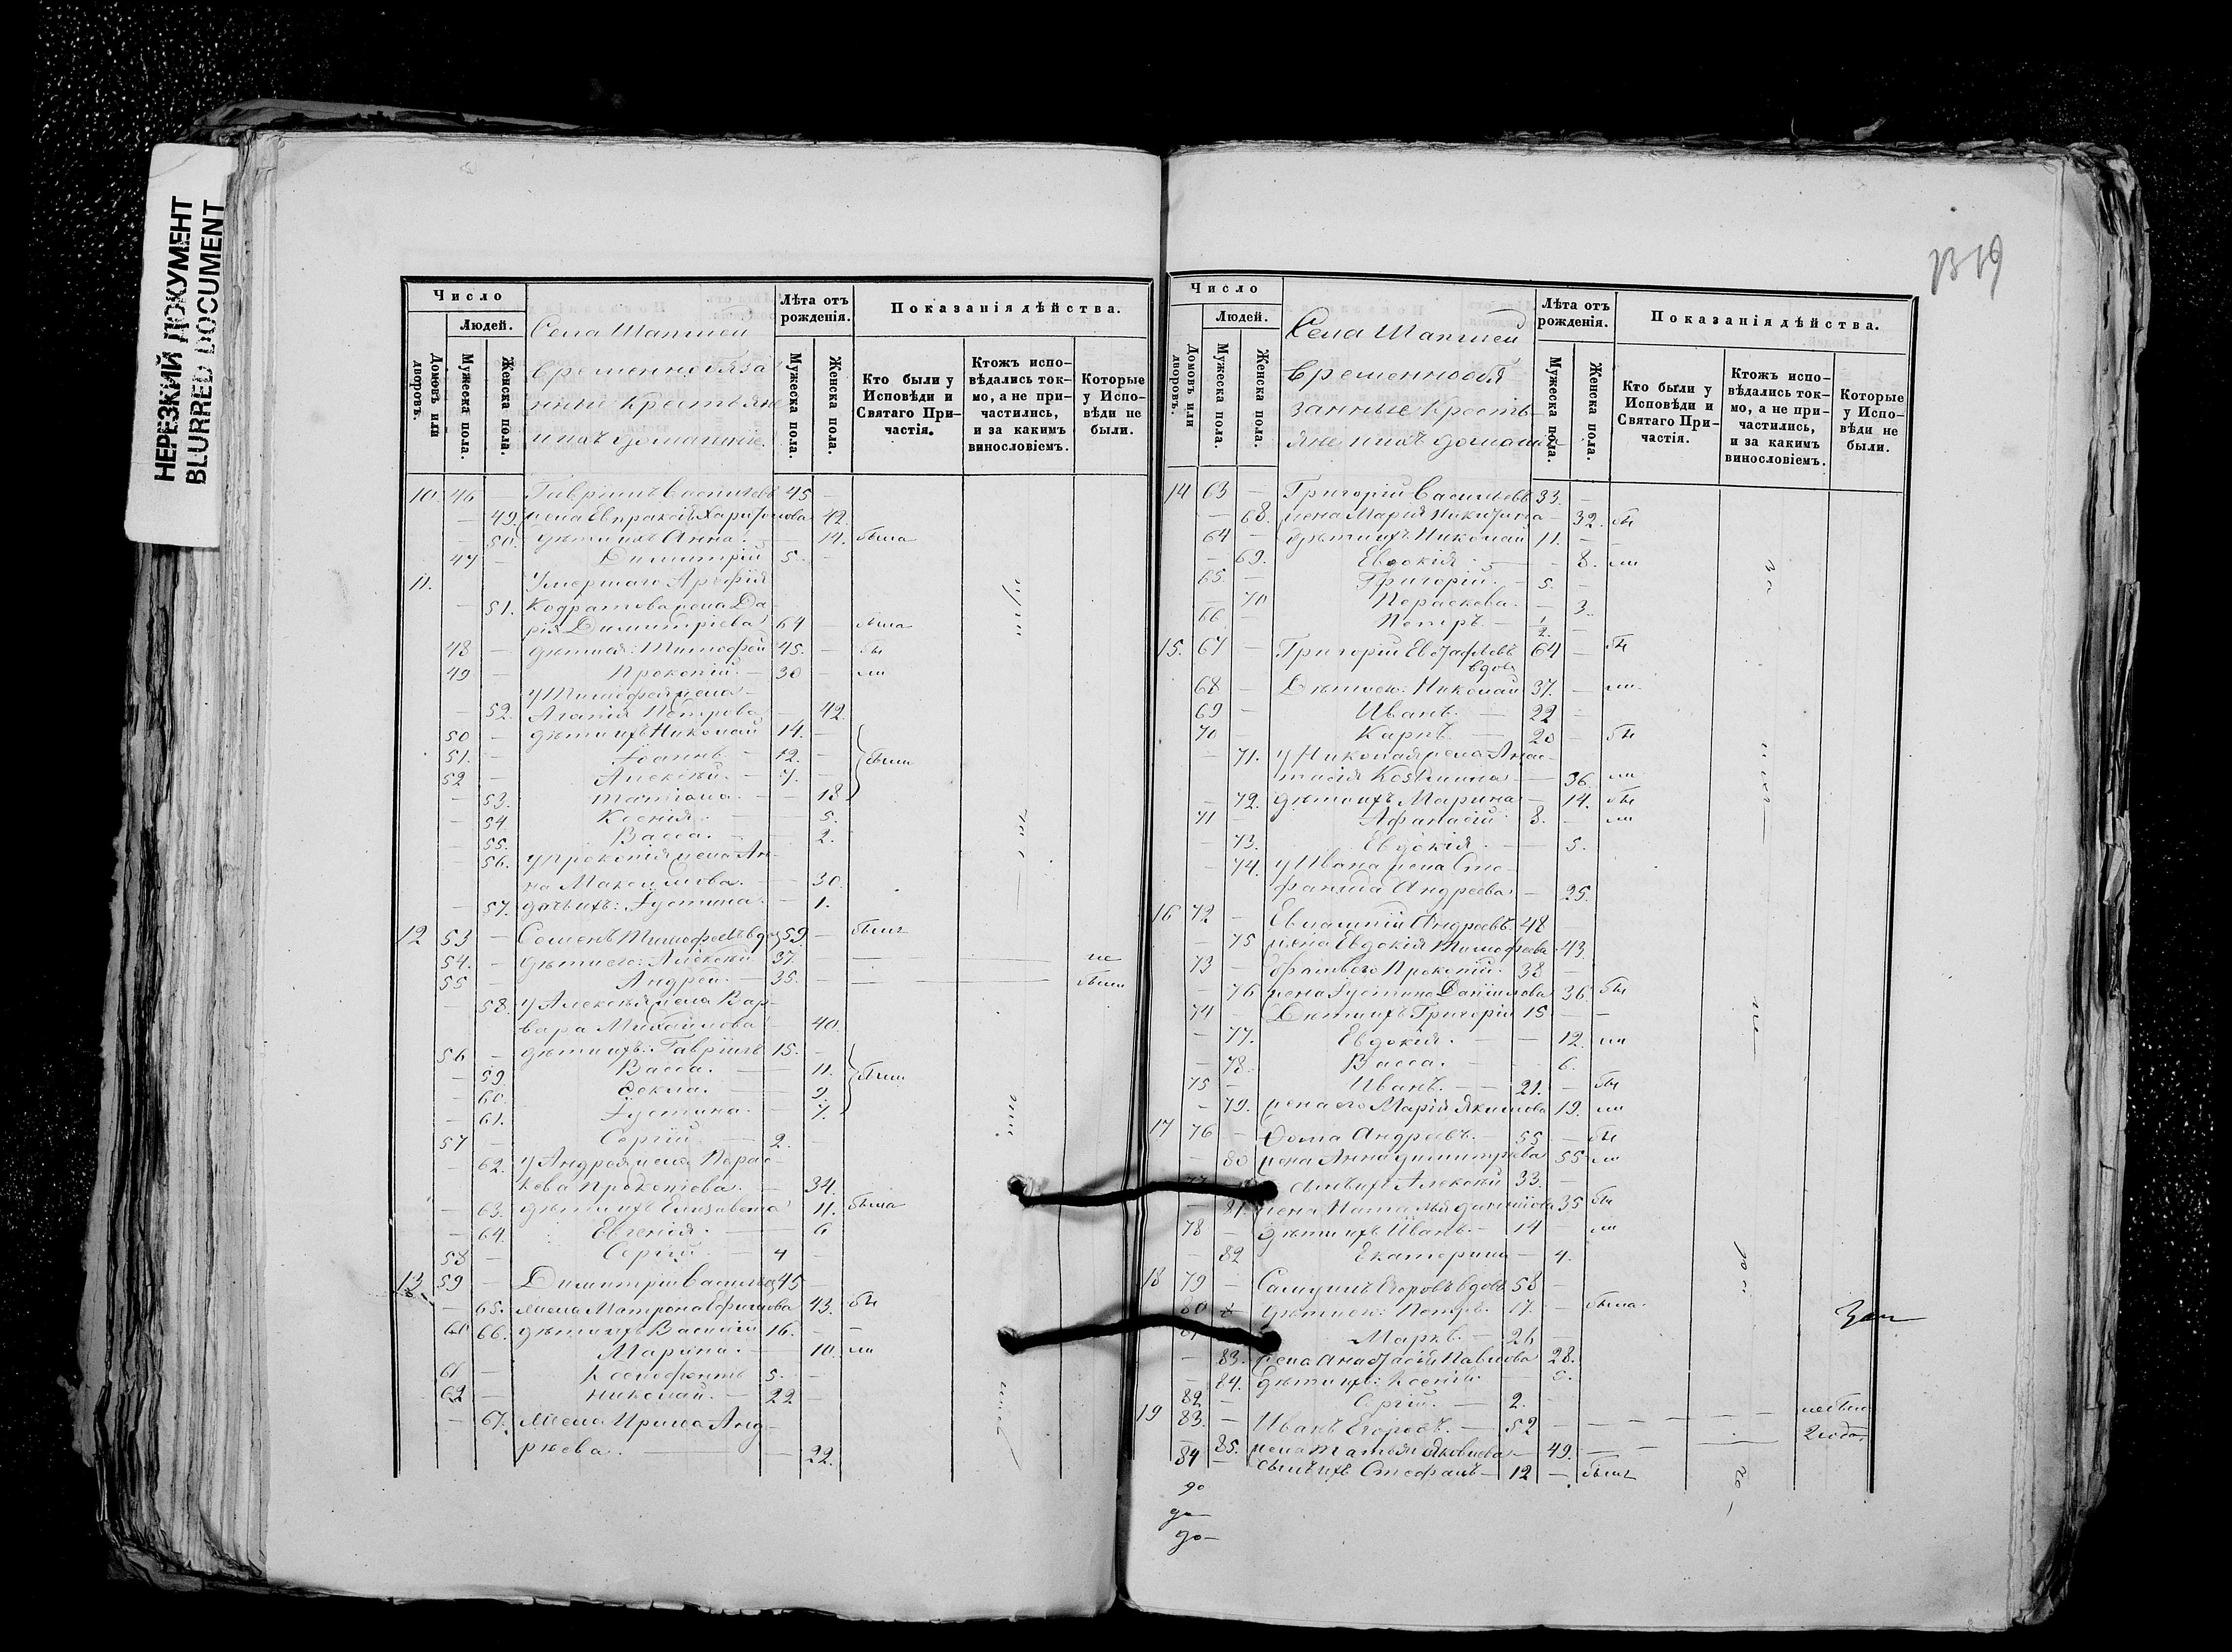 НЕРЕЗКИЙ ДОКУМЕНТ
BLURRED DOCUMENT
Число
Людей.
Домовъ или дворовъ.
Мужеска пола.
Женска пола.
Села
временнообяза
нные крестьяне
и ихъ домашніе
Лѣта отъ рожденія.
Мужеска пола.
Женска пола.
Показанія дѣйства.
Кто были у Исповѣди и Святаго Причастія.
Ктожъ исповѣдались токмо, а не причастились, и за какимъ винословіемъ.
Которые у Исповѣди не были.
10. 46 — Гавріилъ Васильевъ 45 —
— 49. жена Евпраксія Харитонова 42.
— 50. дѣти ихъ Анна. — 14. была
47 — Димитрій 5. —
11. Умершаго Арефія
— 51. Кодратова жена Да
рія Димитріева 64 —
48 — дѣти ея: Тимофей 45. — бы
49 — Прокопій. — 30 — ли
у Тимофея жена
— 52. Агапія Петрова 42.
50 — дѣти ихъ Николай 14. —
51. — Іоаннъ — 12. — были
52 — Алексѣй. — 7. —
— 53. Татіана. — — 18
— 54. Ксенія. — 5.
— 55. Васса. — 2.
— 56. у Прокопія жена Ан
на Максимова. — 30.
— 57. дочь ихъ: Іустина. — 1.
12 53 — Семенъ Тимофеевъ вдов 59. — былъ
54. — дѣти его: Алексѣй 37. — — не
55 — Андрей — 35. — — были
— 58. у Алексѣя жена Вар
вара Михайлова 40.
56 — дѣти ихъ: Гавріилъ 15. —
— 59. Васса. — 11. были
— 60. Ѳекла. — 9.
— 61. Іустина. — 7.
57 — Сергій. — 2. —
— 62. у Андрея жена Парас
кева Прокопіева. — 34.
— 63. дѣти ихъ Елизавета 11. была
— 64. Евгенія. — 6
58 — Сергій. — 4 —
13. 59 — Димитрій Васильев 45 —
— 65. жена Матрона Ефимова 43. бы
66. дѣти ихъ Василій 16. — —
Марина. — 10. ли
61 — Ксенофонтъ 5. —
62 — Николай. — 22
— 67. жена Ирина Анд
рѣева. — — 22.
1319
Число
Людей.
Домовъ или дворовъ.
Мужеска пола.
Женска пола.
Села
временнообя
занные кресть
яне и ихъ домаш
Лѣта отъ рожденія.
Мужеска пола.
Женска пола.
Показанія дѣйства.
Кто были у Исповѣди и Святаго Причастія.
Ктожъ исповѣдались токмо, а не причастились, и за какимъ винословіемъ.
Которые у Исповѣди не были.
14 63 — Григорій Васильевъ 33. —
— 68. жена Марія Никитина — 32. бы
64 — дѣти ихъ Николай 11. — —
— 69. Евдокія — 8. ли
65. — Григорій. — 5. —
— 70 Параскева. — 3.
66 — Петръ — 1/2. —
15. 67 — Григорій Евстафьевъ 64 — бы
вдовъ
68 — Дѣти его: Николай 37. — ли
69 — Иванъ. — 22 —
70 — Карпъ. — 20 — бы
— 71. у Николая жена Анас
тасія Козьмина — 36. ли
— 72. дѣти ихъ Марина — 14. бы
71 — Афанасій 8. — ли
— 73. Евдокія — 5.
— 74. у Ивана жена Сте
фанида Андреева — 25.
16 72 — Андреевъ 48
— 75 жена Евдокія Тимофеева 43.
73 — братъ его Прокопій. 38 —
— 76 жена Іустина Даніилова 36. бы
74 — Дѣти ихъ Григорій 15 — —
— 77. Евдокія. — — 12. ли
— 78. Васса. — 6.
75 — Иванъ. — 21. — бы
— 79. жена его Марія Якимова 19. ли
17 76 — Ѳома Андреевъ. — 55 — бы
— 80 жена Анна Димитріева 55 ли
77 сынъ ихъ Алексѣй 33. —
— 81. жена Наталія 35 бы
78 — дѣти ихъ Иванъ. — 14 ли
— 82 Екатерина — 4.
18 79 — Самуилъ Егоровъ вдовъ 58 —
80 дѣти его: Петръ. 17. —
81 Маркъ. — 26 —
— 83. жена Анастасія Павлова 28.
— 84. дѣти ихъ: Ксенія. —
82 — Сергій. — 2. —
19 83. — Иванъ Егоровъ. — 52 — — не был
— 85. жена Татьяна Яковлева — 49. — 2 года
84 — сынъ ихъ Стефанъ — 12 — былъ